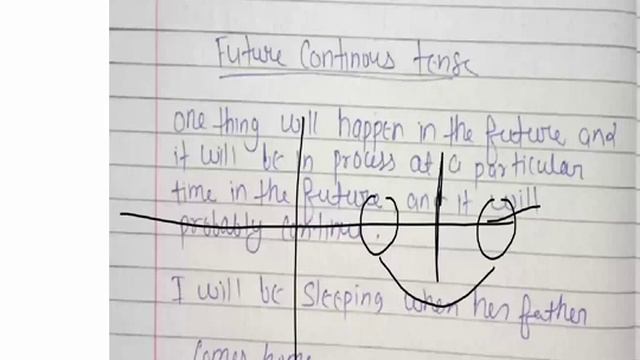 Future Continous tense
one thing will happen in the future and
it will be in process at a particular
time in the future and it will
probably continue.
I will be sleeping when her father
comes home